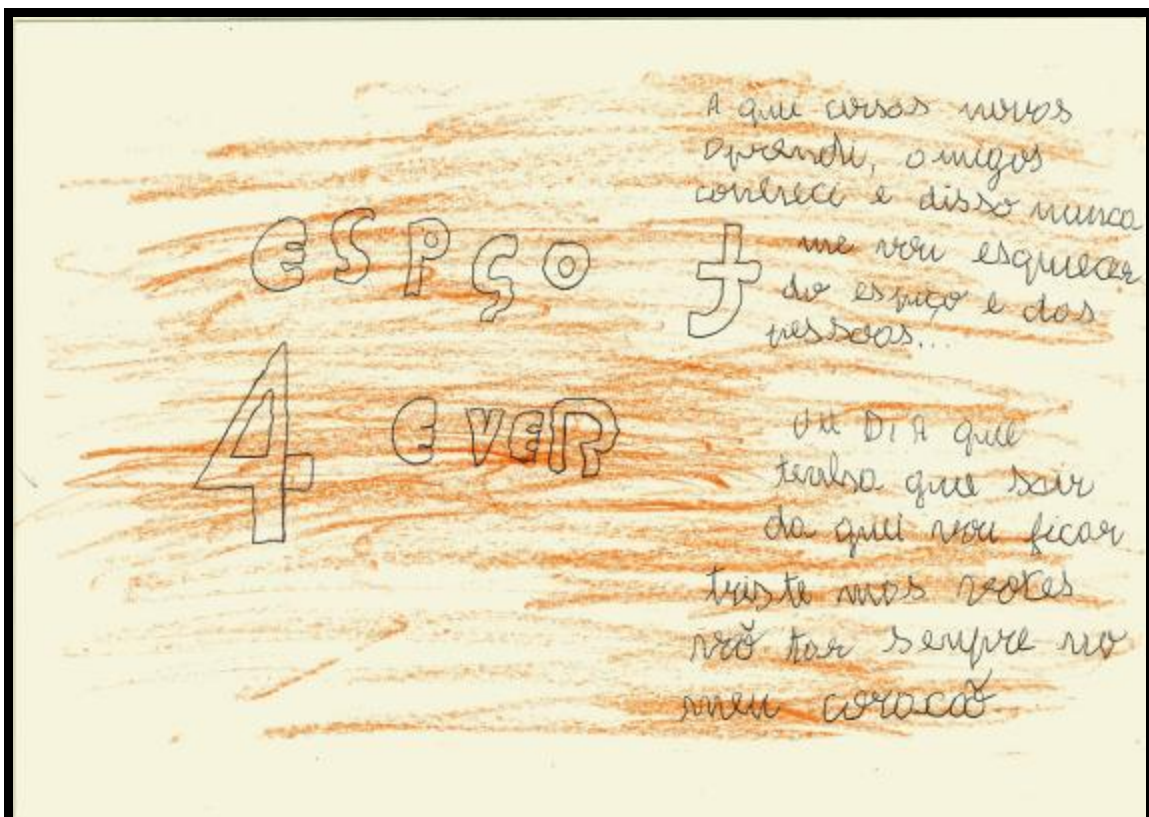 ESPÇO J
4 EVER
A qui coisas novas
aprendi, amigos
conheci e disso nunca
me vou esquecer
do espaço e das
pessoas...
Um DIA que
tenha que sair
da qui vou ficar
triste mas voces
vão tar sempre no
meu coracão